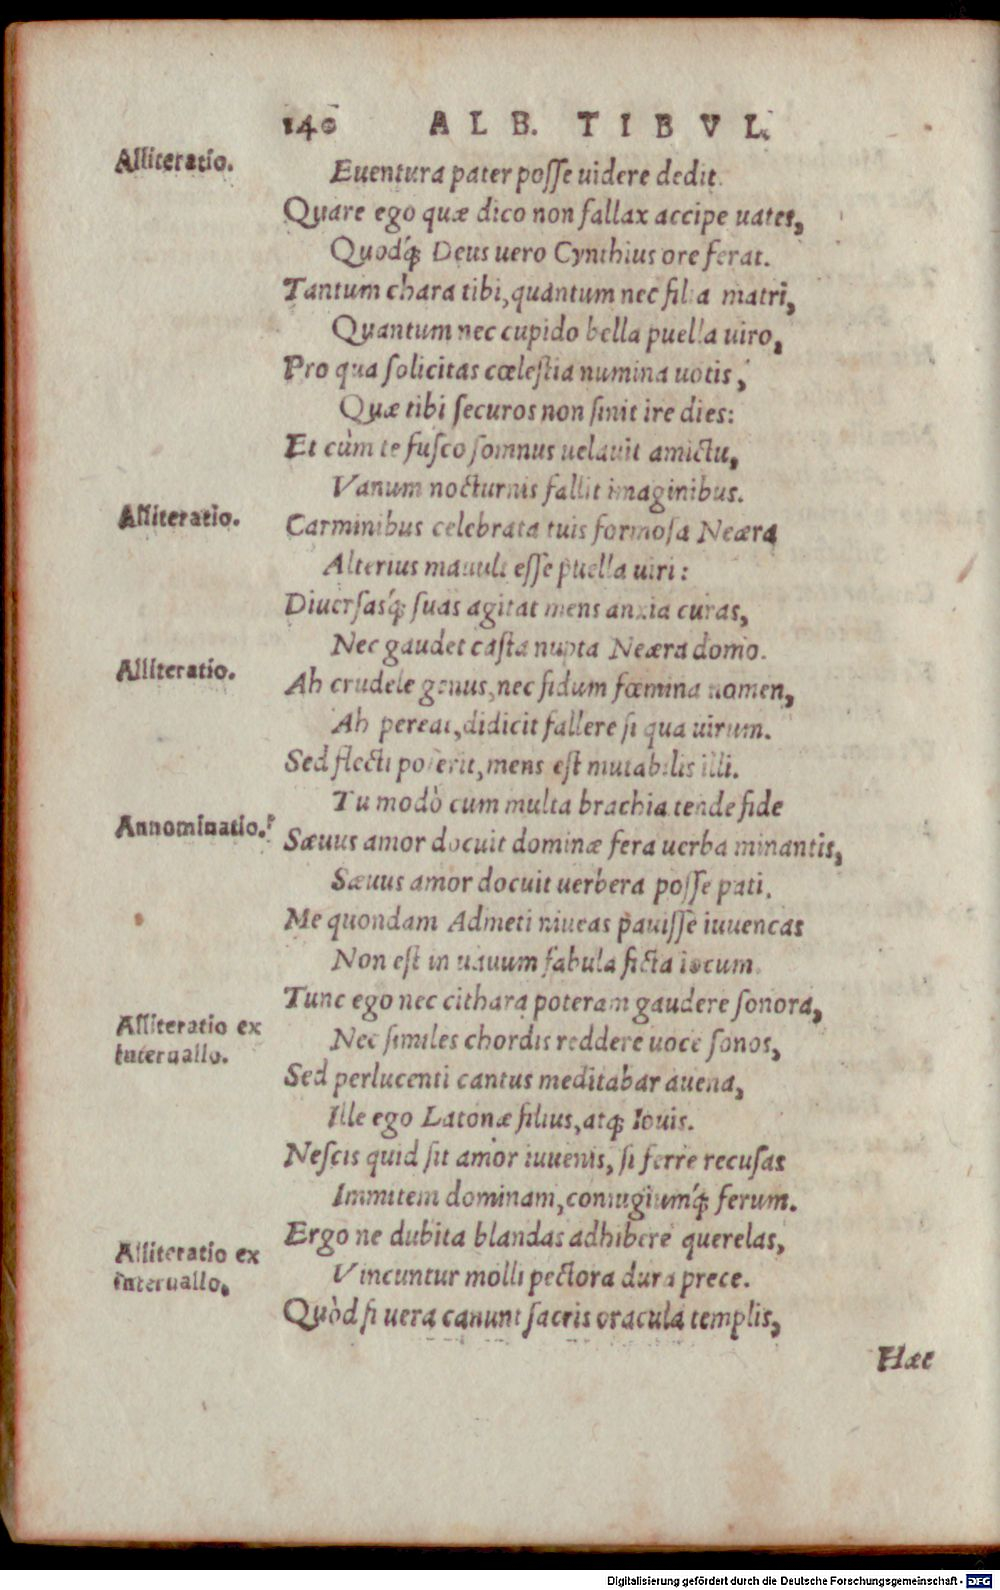 140 ALB. TIBVL.
Alliteratio.
Euentura pater poſſe uidere dedit.
Quare ego quæ dico non fallax accipe uates,
Quodq́; Deus uero Cynthius ore ferat.
Tantum chara tibi, quantum nec filia matri,
Quantum nec cupido bella puella uiro,
Pro qua ſolicitas cœleſtia numina uotis,
Quæ tibi ſecuros non ſinit ire dies:
Et cùm te fuſco ſomnus uelauit amictu,
Vanum nocturnis fallit imaginibus.
Alliteratio.
Carminibus celebrata tuis formoſa Neæra
Alterius mauult eſſe puella uiri:
Diuerſasq́; ſuas agitat mens anxia curas,
Nec gaudet caſta nupta Neæra domo.
Alliteratio.
Ah crudele genus, nec fidum fœmina nomen,
Ah pereat, didicit fallere ſi qua uirum.
Sed flecti poterit, mens eſt mutabilis illi.
Tu modò cum multa brachia tende fide
Annominatio.
Sæuus amor docuit dominæ fera uerba minantis,
Sæuus amor docuit uerbera poſſe pati.
Me quondam Admeti niueas pauiſſe iuuencas
Non eſt in uauum fabula ficta iocum.
Tunc ego nec cithara poteram gaudere ſonora,
Alliteratio ex
interuallo.
Nec ſimiles chordis reddere uoce ſonos,
Sed perlucenti cantus meditabar auena,
Ille ego Latonæ filius, atq; Iouis.
Neſcis quid ſit amor iuuenis, ſi ferre recuſas
Immitem dominam, coniugiumq́; ferum.
Ergo ne dubita blandas adhibere querelas,
Alliteratio ex
interuallo.
Vincuntur molli pectora dura prece.
Quòd ſi uera canunt ſacris oracula templis,
Hæc
Digitalisierung gefördert durch die Deutsche Forschungsgemeinschaft - DFG